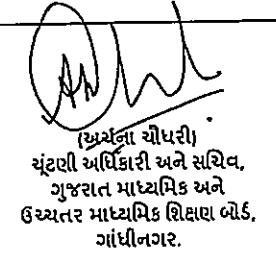 (અર્ચના ચૌધરી)
ચૂંટણી અધિકારી અને સચિવ,
ગુજરાત માધ્યમિક અને
ઉચ્ચતર માધ્યમિક શિક્ષણ બોર્ડ,
ગાંધીનગર.